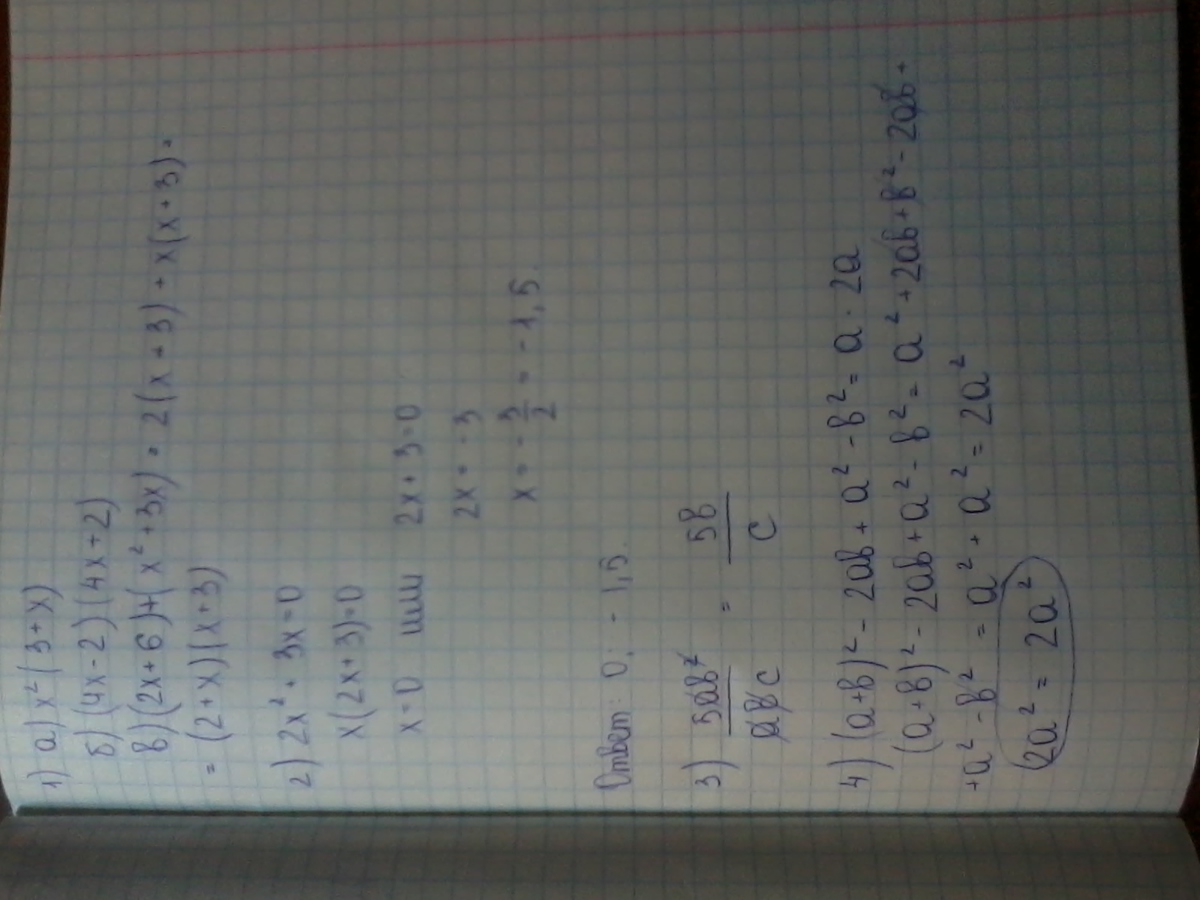 1) а) x²(3+x)
б) (4x-2)(4x+2)
в) (2x+6)+(x²+3x) = 2(x+3)+x(x+3) =
= (2+x)(x+3)
2) 2x²+3x=0
x(2x+3)=0
x=0 или 2x+3=0
2x=-3
x=-3/2=-1,5.
Ответ: 0; -1,5.
3) 5ab²/abc = 5b/c
4) (a+b)²-2ab+a²-b²=a·2a
(a+b)²-2ab+a²-b²=a²+2ab+b²-2ab+
+a²-b²=a²+a²=2a²
2a²=2a²